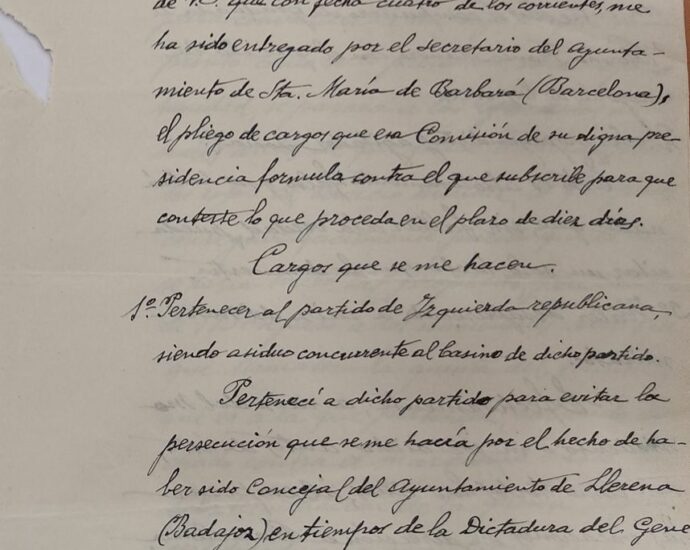 de V.E. que con fecha cuatro de los corrientes, me
ha sido entregado por el secretario del ayunta-
miento de Sta. María de Barbará (Barcelona),
el pliego de cargos que esa Comisión de su digna pre-
sidencia formula contra el que subscribe para que
conteste lo que proceda en el plazo de diez días.
Cargos que se me hacen.
1º. Pertenecer al partido de Izquierda republicana,
siendo asiduo concurrente al Casino de dicho partido.
Pertenecí a dicho partido para evitar la
persecución que se me hacía por el hecho de ha-
ber sido Concejal del Ayuntamiento de Llerena
(Badajoz) en tiempos de la Dictadura del Gene